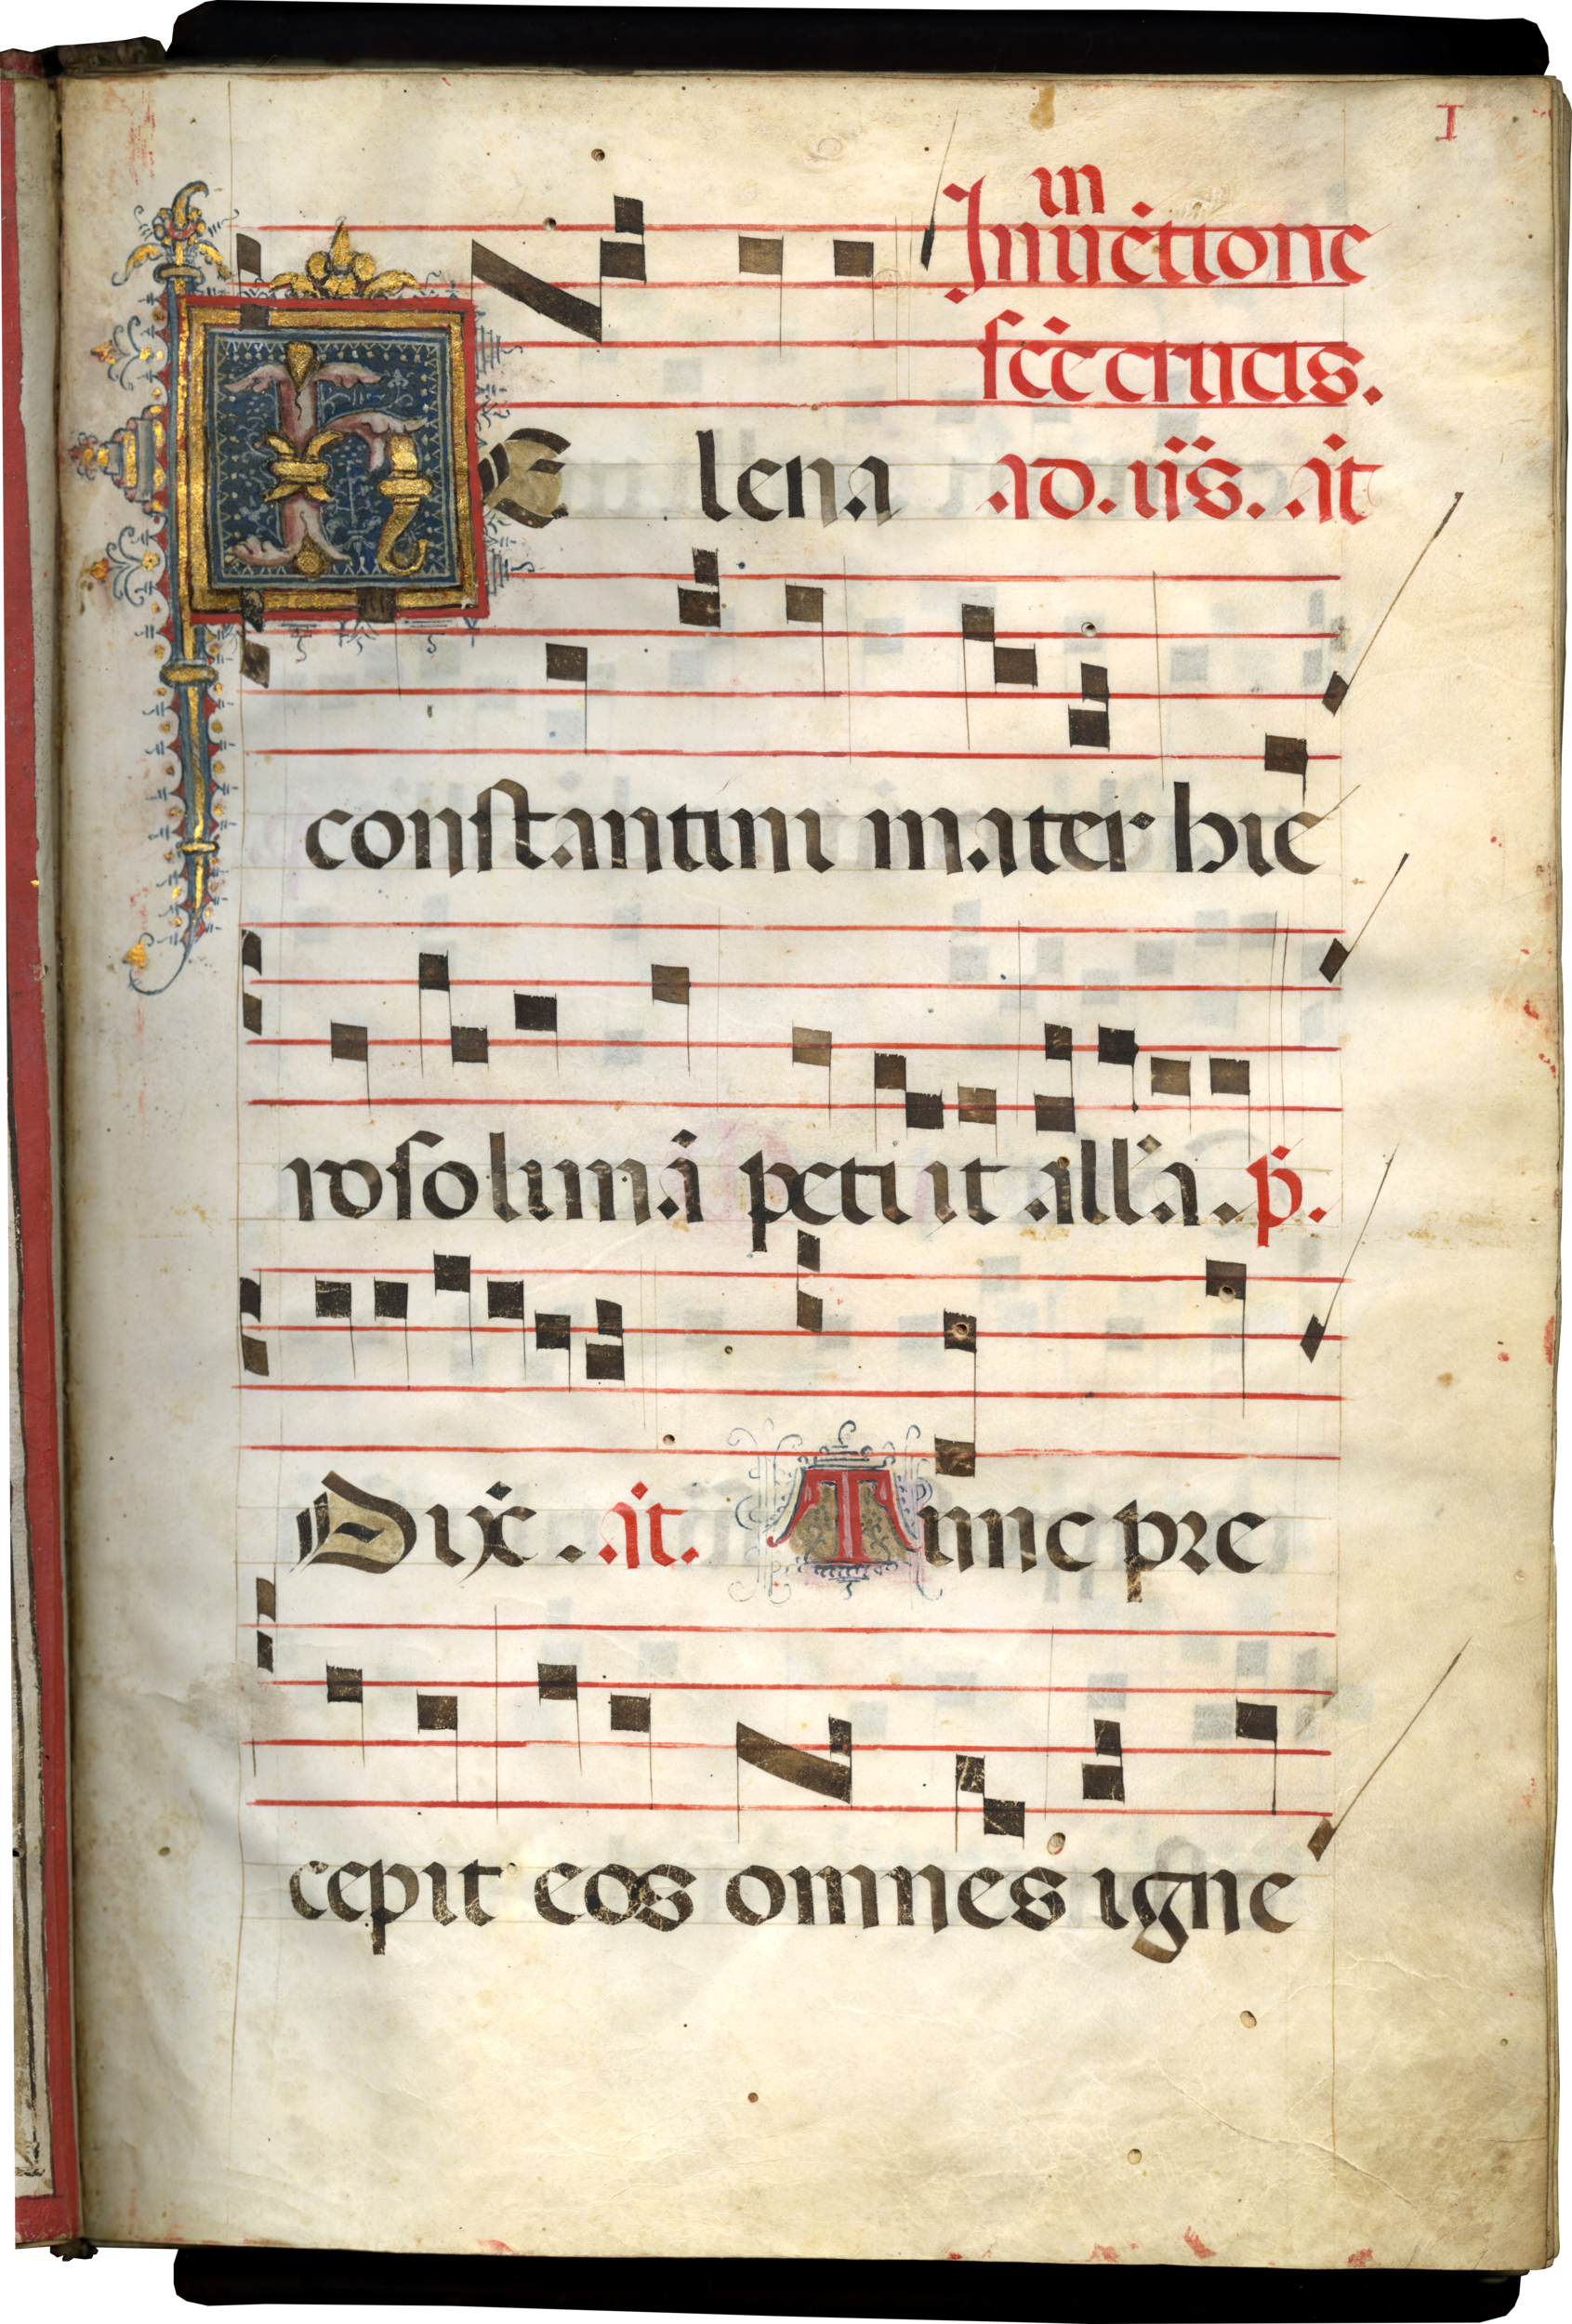 I
in
Inuētione
scē crucis.
HElena ad. iīs. āt
constantini mater hie
rosolimā petiit all'a. p̄.
Dix̄. āt. Tunc pre
cepit eos omnes igne